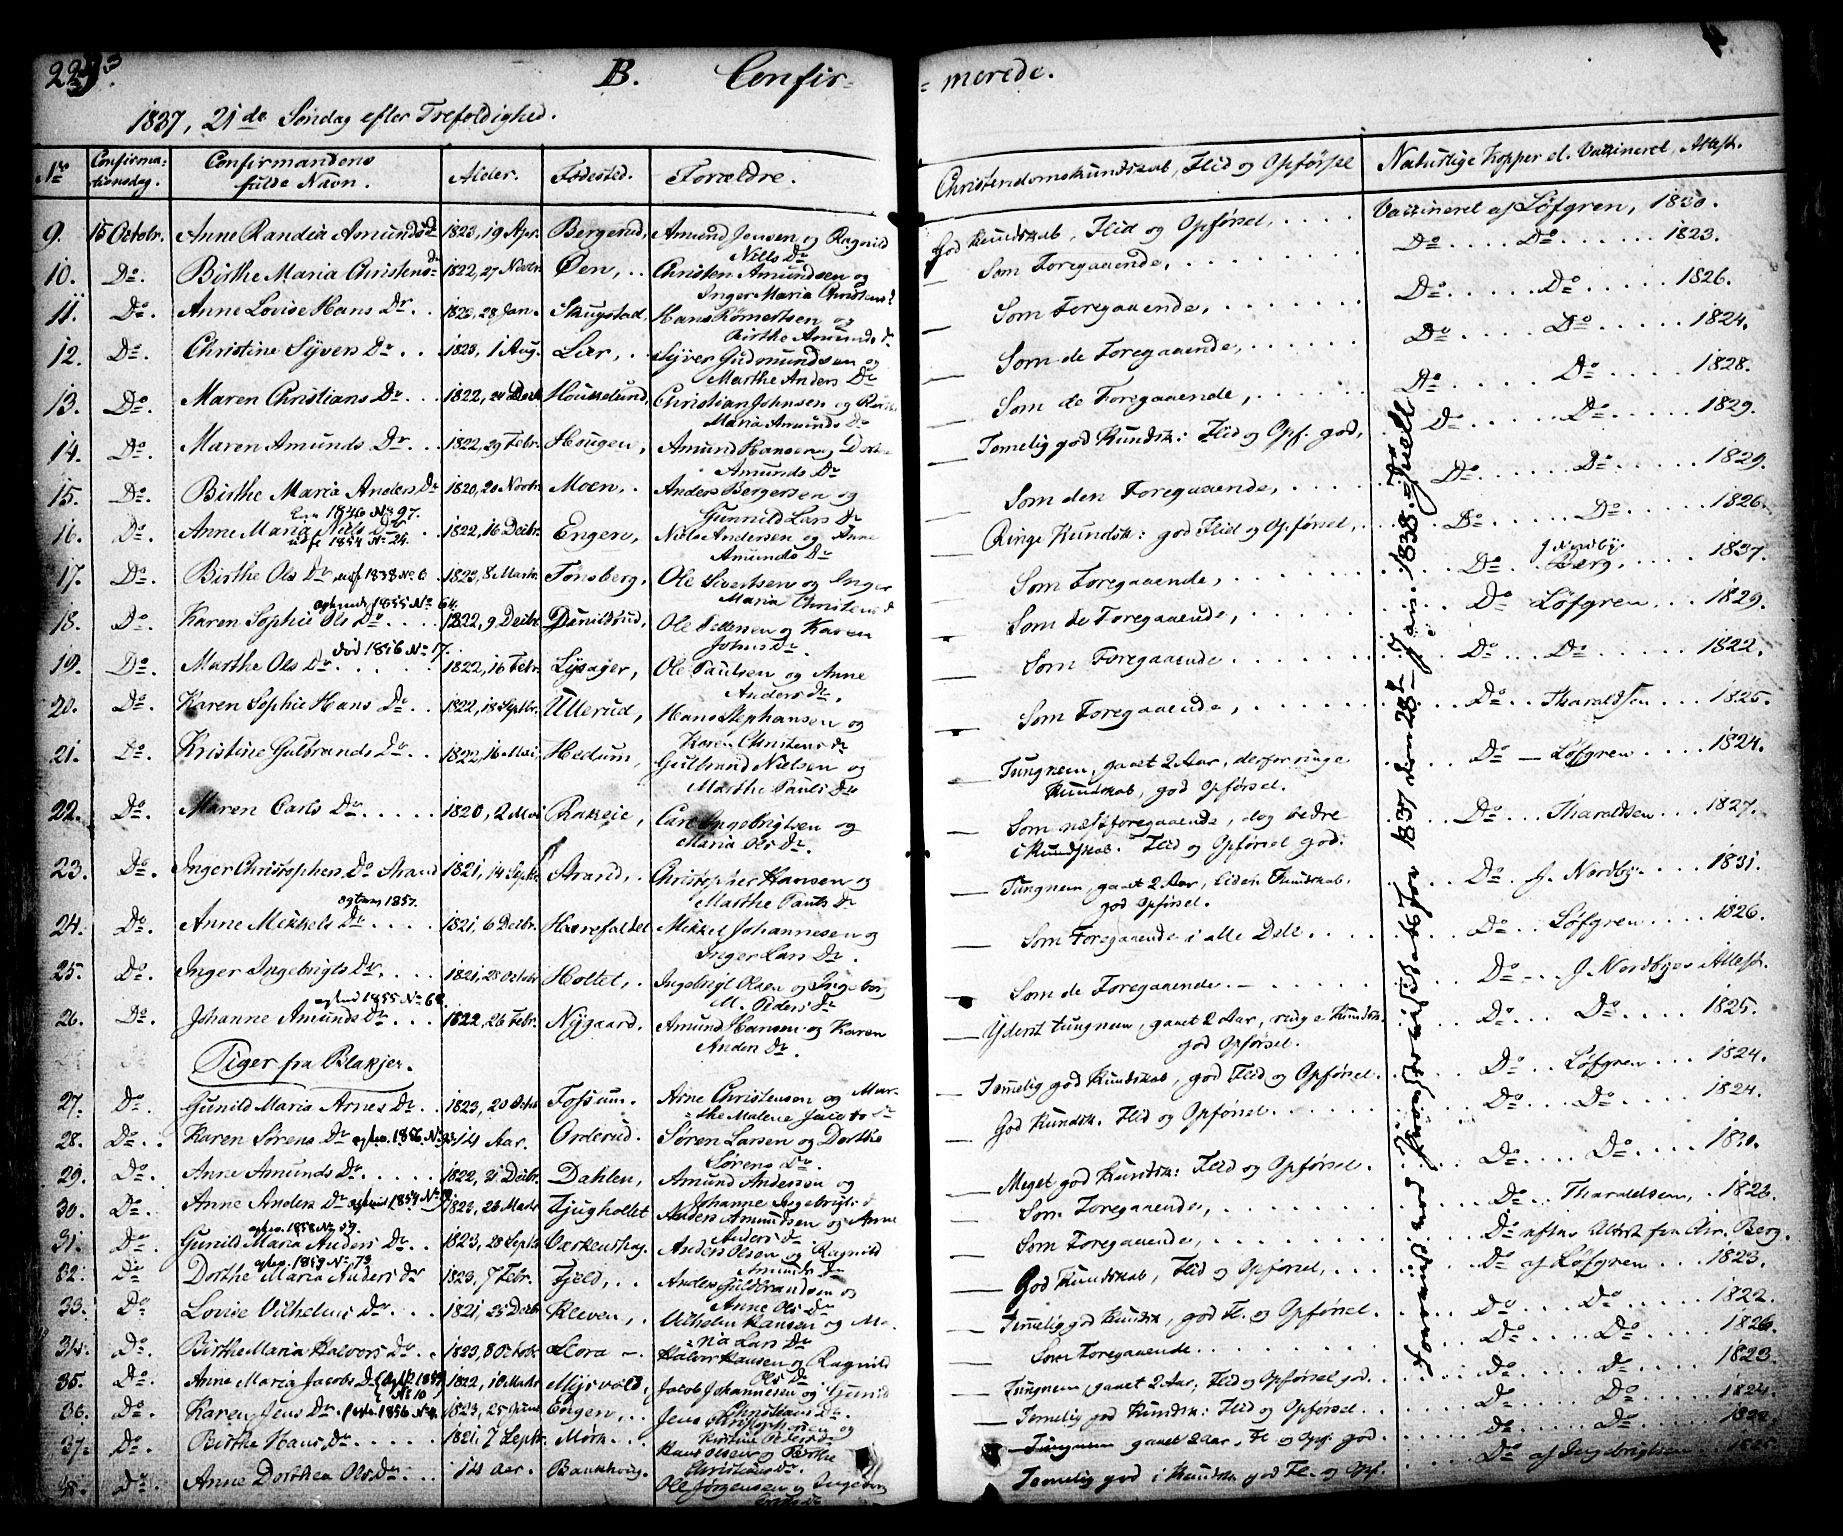 B. Confir-
= merede.
1837, 21de Søndag efter Trefoldighed.
No Confirma-tionsdag. Confirmandens fulde Navn. Alder. Fødested. Forældre. Christendomskundskab, Flid og Opførsel Naturlige Kopper el. Vaccineret, Attest.
9. 15 Octobr. Anne Randia Amundsd 1823, 19 Apr. Bergerud, Amund Jensen og Ragnild Nills Dr God Kundskab, Flid og Opførsel, .... Vaccineret af Løfgren, 1830.
10. Do. Birthe Maria Christensdr 1822, 27 Novbr Øen, .. Christen Amundsen og Inger Maria Christens — Som Foregaaende, ........ Do Do ...... 1823.
11. Do. Anne Lovise Hans Dr. .. 1823, 28 Jan. Skugstad Hans Rømertsen og Birthe Amunds dr — Som Foregaaende, ........ Do ..... Do ...... 1826.
12. Do. Christine Syvers Dr ... 1823, 1 Aug. Lier, .. Syver Gudmundsen og Marthe Anders Dr — Som de Foregaaende, ...... Do ..... Do ...... 1824.
13. Do. Maren Christians Dr ... 1822, 24 Decbr Houkelund, Christian Johnsen og Maria Amunds Dr — Som de Foregaaende, ...... Do ..... Do ...... 1828.
14. Do. Maren Amunds Dr ... 1822, 29 Febr. Hougen, Amund Hansen og Amunds Dr — Temelig god Kundsk: Flid og Opf. god, .. Do ..... Do ...... 1829.
15. Do. Birthe Maria Anders Dr 1820, 20 Novbr. Moen, .. Anders Bergersen og Gunnild Lars Dr — Som den Foregaaende, ..... Do ..... Do ...... 1829.
1846 No 97.
16. Do. Anne Maria Niels Dr 1822, 16 Decbr. Engen, Niels Andersen og Anne Amunds Dr — Ringe Kundsk: god Flid og Opførsel, ... Do ..... Do ...... 1826.
1854 No 24.
17. Do. Birthe Ols Dr 1838 No 6 1823, 8 Marts Tonsberg, Ole Sivertsen og Inger Maria Christens d — Som Foregaaende, ....... Do J Nordby Berg, .... 1837.
1855 No 64.
18. Do. Karen Sophie Ols Dr ... 1822, 9 Decbr Danielsrud, Ole Pettersen og Karen Johns Dr. Som de Foregaaende, ....... Do ... Løfgren .... 1829.
død 1856 No 17.
19. Do. Marthe Ols Dr. ..... 1822, 16 Febr. Lysager, Ole Paulsen og Anne Anders dr. — Som Foregaaende ....... Do ... Do ...... 1822.
20. Do. Karen Sophie Hans Dr ... 1822, 18 Septbr. Ullerud, Hans Stephansen og Karen Christens dr — Som Foregaaende, ....... Do ... Tharaldsen ... 1825.
21. Do. Kristine Gulbrands Dr .. 1822, 16 Mai, Hedum, Gulbrand Nielsen og Marthe Pauls Dr — Tungnem, gaaet 2 Aar, derfor ringe Kundskab, god Opførsel. ... Do — Løfgren .... 1824.
22. Do. Maren Carls Dr. ..... 1820, 2 Mai Rakeie, Carl Ingebrigtsen og Maria Ols Dr. — Som næstforegaaende, dog bedre i Kundskab. Flid og Opførsel god. ... Do. Tharaldsen .... 1827.
23. Do. Inger Christophers Dr Strand 1821, 14 Septbr Strand, . Christopher Hansen og Marthe Pauls Dr — Tungnem, gaaet 2 Aar, liden Kundskab. god Opførsel. ... Do ... J. Nordby .... 1831.
1857.
24. Do. Anne Mikkels Dr .... 1821, 6 Decbr. Harefaldet Mikkel Johannesen og Inger Lars Dr. — Som Foregaaende i alle Dele. .... Do .. Løfgren .... 1826.
25. Do. Inger Ingebrigts Dr. ... 1821, 28 Octobr Holtet, Ingebrigt Olsen og Ingebor M. Peders Dr Som de Foregaaende .. Do ... J. Nordbyes Attest.
1855 No 68.
26. Do. Johanne Amunds Dr ... 1822, 26 Febr. Nygaard. Amund Hansen og Karen Anders Dr. — Yderst tungnem, gaaet 2 Aar, ringe Kundsk. god Opførsel. ... Do .. Do ..... 1825.
Piger fra Blakjer.
27. Do. Gunild Maria Arnes Dr. .. 1823, 20 Octbr Fossum. Arne Christensen og Mar-the Malene Dr — Temelig god Kundskab, god Flid og Opførsel. ... Do .. Løfgren .... 1824.
28. Do. Karen Sørens Dr 1856 No 14 Aar. Orderud. Søren Larsen og Dorthe Sørens Dr. — God Kundsk. Flid og Opførsel. ..... Do .. Do ..... 1824.
29. Do. Anne Amunds Dr. .... 1822, 21 Decbr. Dahlen, Amund Anderson og Johanne Ingebrigts d — Meget god Kundsk: Flid og Opførsel. .. Do ... Do ..... 1830.
30. Do. Anne Anders Dr 1854 No 1823, 26 Marts Fjugholtet Anders Amundsen og Anne Anders dr — Som Foregaaende, ....... Do .. Tharaldsen, .. 1823.
1858 No 59.
31. Do. Gunild Maria Anders Dr. . 1823, 28 Septb. Anders Olsen og Ragnild Amunds Dr — Som Foregaaende, ...... Do Attest fra Chr. Berg.
1859 No 73
32. Do Dorthe Maria Anders Dr 1823, 7 Febr. Fjeld, .. Anders Gulbrandsen og Anne Ols Dr — God Kundskab, Flid og Opførsel, .... Do af Løfgren .... 1823.
33. Do Lovise Vilhelms Dr ... 1821, 25 Decbr Kleven, . Vilhelm Hansen og Ma-ria Lars Dr — Temelig god Kundsk., god Fl. og Opførsel. .. Do .. Do ..... 1822.
34. Do. Birthe Maria Halvors Dr .. 1823, 8 Octobr. Llora — Halvor Hansen og Ragnild Ols Dr — Som Foregaaende ........ Do .. Do .... 1826.
35. Do. Anne Maria Jacobs D 1859 No 10 1822, 18 Marts Mysvold, Jacob Johannesen og Gunild Christians Dr. — Tungnem, gaaet 2 Aar, Flid og Opførsel god. .. Do. .. D ..... 1823.
36. Do. Karen Jens Dr. 1856 No 1823, 25 Engen, . Jens og Dr — Temelig god Kundsk: Flid og Opførsel. ... Do. .. Do ... 1824.
37. Do Birthe Hans Dr .... 1821, 7 Septbr. Mørk .. Hans Olsen og Berthe Christians Dr. — Tungnem gaaet 2 Aar, Fl og Opf. god. .. Do ... Do ... 1822.
38. Do. Anne Dorthea Ols Dr. .. 14 Aar. .. Ole Jørgensen og Ingebor Temelig god i Kundsk god Fl. og Opf. ... Do af Ingebrigtsen ...
1837 dom 28de Jan. 1838. Juell